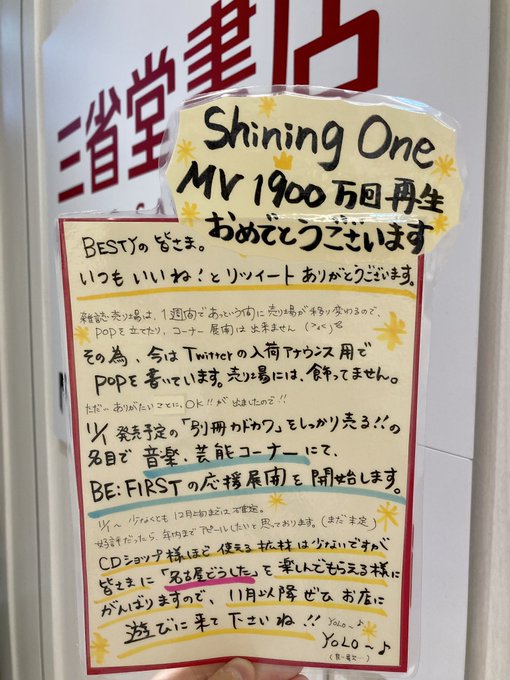 三省堂書店
Shining One
MV 1900万回再生
おめでとうございます
BESTYの皆さま。
いつもいいね!とリツイートありがとうございます。
雑誌売り場は、1週間であっという間に売り場が移り変わるので、
POPを立てたり、コーナー展開は出来ません
その為、今はTwitterの入荷アナウンス用で
POPを書いています。売り場には、飾ってません。
ただ、ありがたいことに、OK!!が出ましたので!!
11/1 発売予定の「別冊カドカワ」をしっかり売る!!の
名目で 音楽、芸能コーナーにて、
BE:FIRSTの応援展開を開始します。
11/1〜 少なくとも12月上旬までは確定。
好評だったら、年内までアピールしたいと思っております。(まだ未定)
CDショップ様ほど使える拡材は少ないですが
皆さまに「名古屋どうした」を楽しんでもらえる様に
がんばりますので、11月以降ぜひお店に
遊びに来て下さいね!! YOLO〜♪
YOLO〜♪